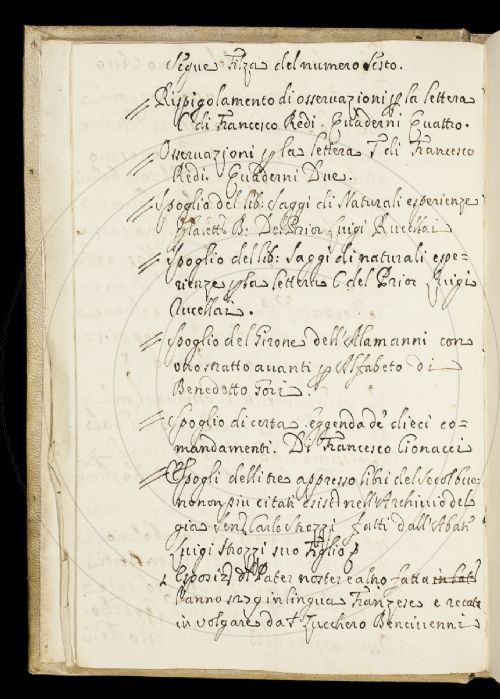 Segue Filza del numero Sesto.
Rispigolamento di osservazioni p la lettera
C di Francesco Redi. Quaderni Quattro.
Osservazioni p la lettera T di Francesco
Redi. Quaderni Due.
Spoglio del lib: Saggi di Naturali esperienze
B: Del Prior Luigi Rucellai
Spoglio del lib: Saggi di naturali espe=
rienze p la lettera C del Prior Luigi
Rucellai.
Spoglio del Girone dell'Alamanni con
uno stratto avanti p Alfabeto di
Benedotto Gori.
Spoglio di certa Leggenda de' dieci co=
mandamenti. Di Francesco Cionacci
Spogli delli tre appresso libri del Secol buo=
no non piu citati esist nell'Archivio del
gia Sen Carlo Strozzi fatti dall'Abate
Luigi Strozzi suo Figlio
Esposiz del Pater nostro e altro fatta
l'anno in lingua Franzese e recata
in volgare da Zucchero Bencivenni